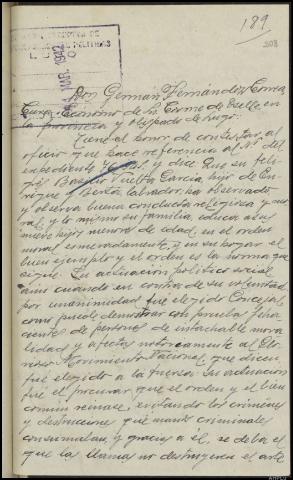 189
208
MAR. 1942
POLITICAS
Don Germán Fernández
Cura Ecónomo de
la provincia y Obispado de Lugo:
Tiene el honor de contestar al
oficio que hace referencia al Nº del
expediente y dice Que su feli-
grés García, hijo de En-
rique y Benita, labrador, ha observado
y observa buena conducta religiosa y mo-
ral, y lo mismo su familia, educa a sus
nueve hijos, menores de edad, en el orden
moral esmeradamente, y en su hogar el
buen ejemplo y el orden es la norma que
sigue. En actuación político social
aun cuando en contra de su voluntad
por unanimidad fué elegido Concejal
como puede demostrar con pruebas feha-
cientes de personas de intachable mora-
lidad y afectas notoriamente al Glo-
rioso Movimiento Nacional, que dicen
fué elegido a la fuerza. Su actuación
fué el procurar que el orden y el bien
común reinase, evitando los crímenes
y destrucciones que manos criminales
consumaban, y gracias a él, se debe el
que las llamas no destruyeran el arte